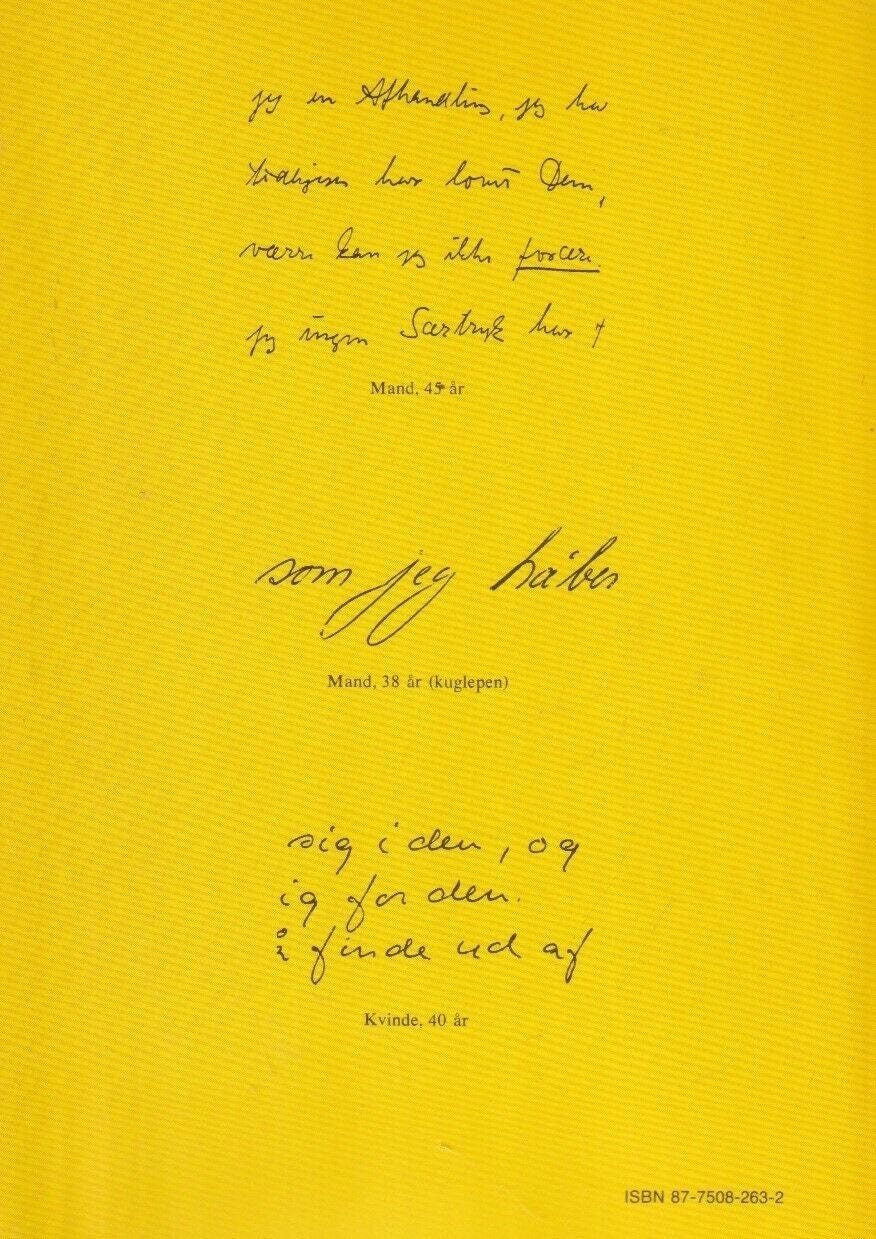 jeg en Afhandling, jeg har
tidligere har lovet Dem,
værre kan jeg ikke
jeg ingen Særtryk har
Mand, 45 år
som jeg håber
Mand, 38 år (kuglepen)
sig i den, og
ig for den.
å finde ud af
Kvinde, 40 år
ISBN 87-7508-263-2